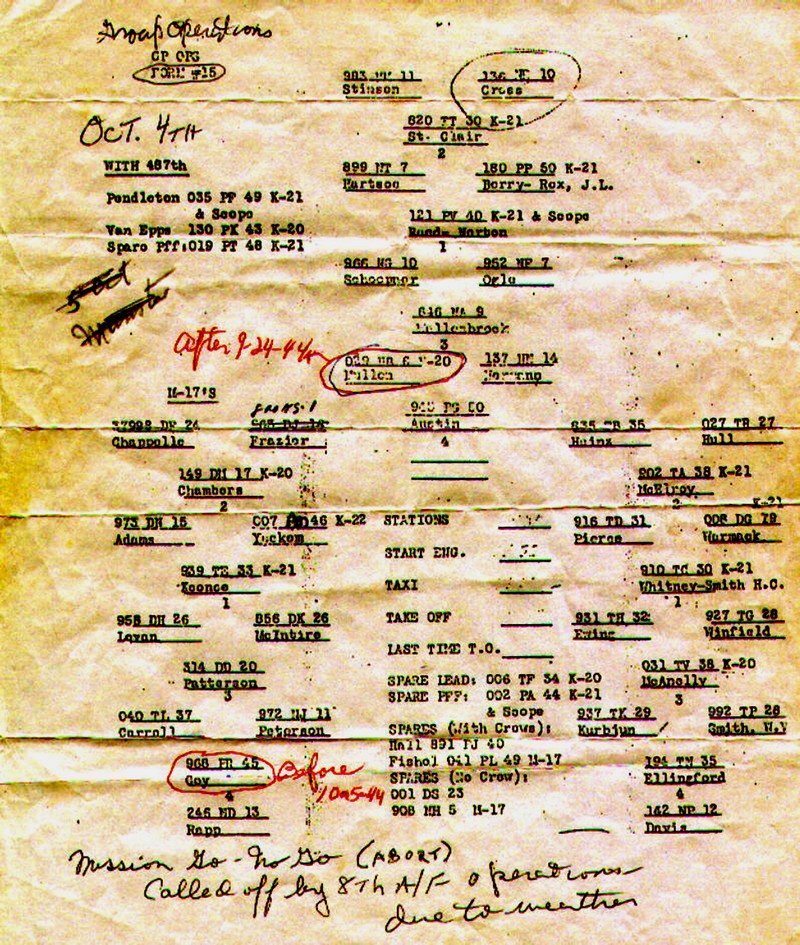 Group Operations
GP OPS
FORM #15
11
10
Stinson
Cross
OCT. 4TH
820 TT 30 K-21
St. Clair
2
WITH 487th
899 NT 7
180 PP 50 K-21
Hartson
Berry- Rex, J.L.
Pendleton 035 PF 49 K-21
& Scope
121 PV 40 K-21 & Scope
Van Epps 130 PK 43 K-20
Spare Pff: 019 PT 48 K-21
1
966 NG 10
952 NP 7
Ogle
5 Oct
Munster
NA 9
3
After 9-24-44
K-20
137 14
Mullen
M-17'S
Chappelle
Frazier
Austin
4
835 TR 35
027 TB 27
Heinz
Hull
149 DH 17 K-20
Chambers
2
902 TA 38 K-21
McElroy
2
K-21
973 DH 15
007 46 K-22
STATIONS
916 TD 31
008 DG 79
Adams
Yockom
Pierce
Warmack
START ENG.
939 TE 33 K-21
Koonce
1
TAXI
910 TC 30 K-21
Whitney-Smith H.C.
1
958 DH 26
856 DK 26
TAKE OFF
931 TH 32
927 TG 28
Levan
McIntire
Ewing
Winfield
LAST TIME T.O.
314 DD 20
Patterson
3
031 TV 38 K-20
McAnelly
3
SPARE LEAD: 006 TF 34 K-20
SPARE PFF: 002 PA 44 K-21
& Scope
040 TL 37
972 NJ 11
937 TK 29
992 TP 28
Carroll
Peterson
SPARES (With Crews):
Kurbjun
Smith, W.V
Hall 891 PJ 40
968 PR 45
Fishel 041 PL 49 M-17
194 TN 35
Coy
Before
SPARES (No Crew):
Ellingford
4
10-5-44
001 DS 23
4
246 ND 13
908 NH 5 M-17
142 NP 12
Rapp
Davis
Mission Go-No Go (ABORT)
Called off by 8th A/F operations
due to weather